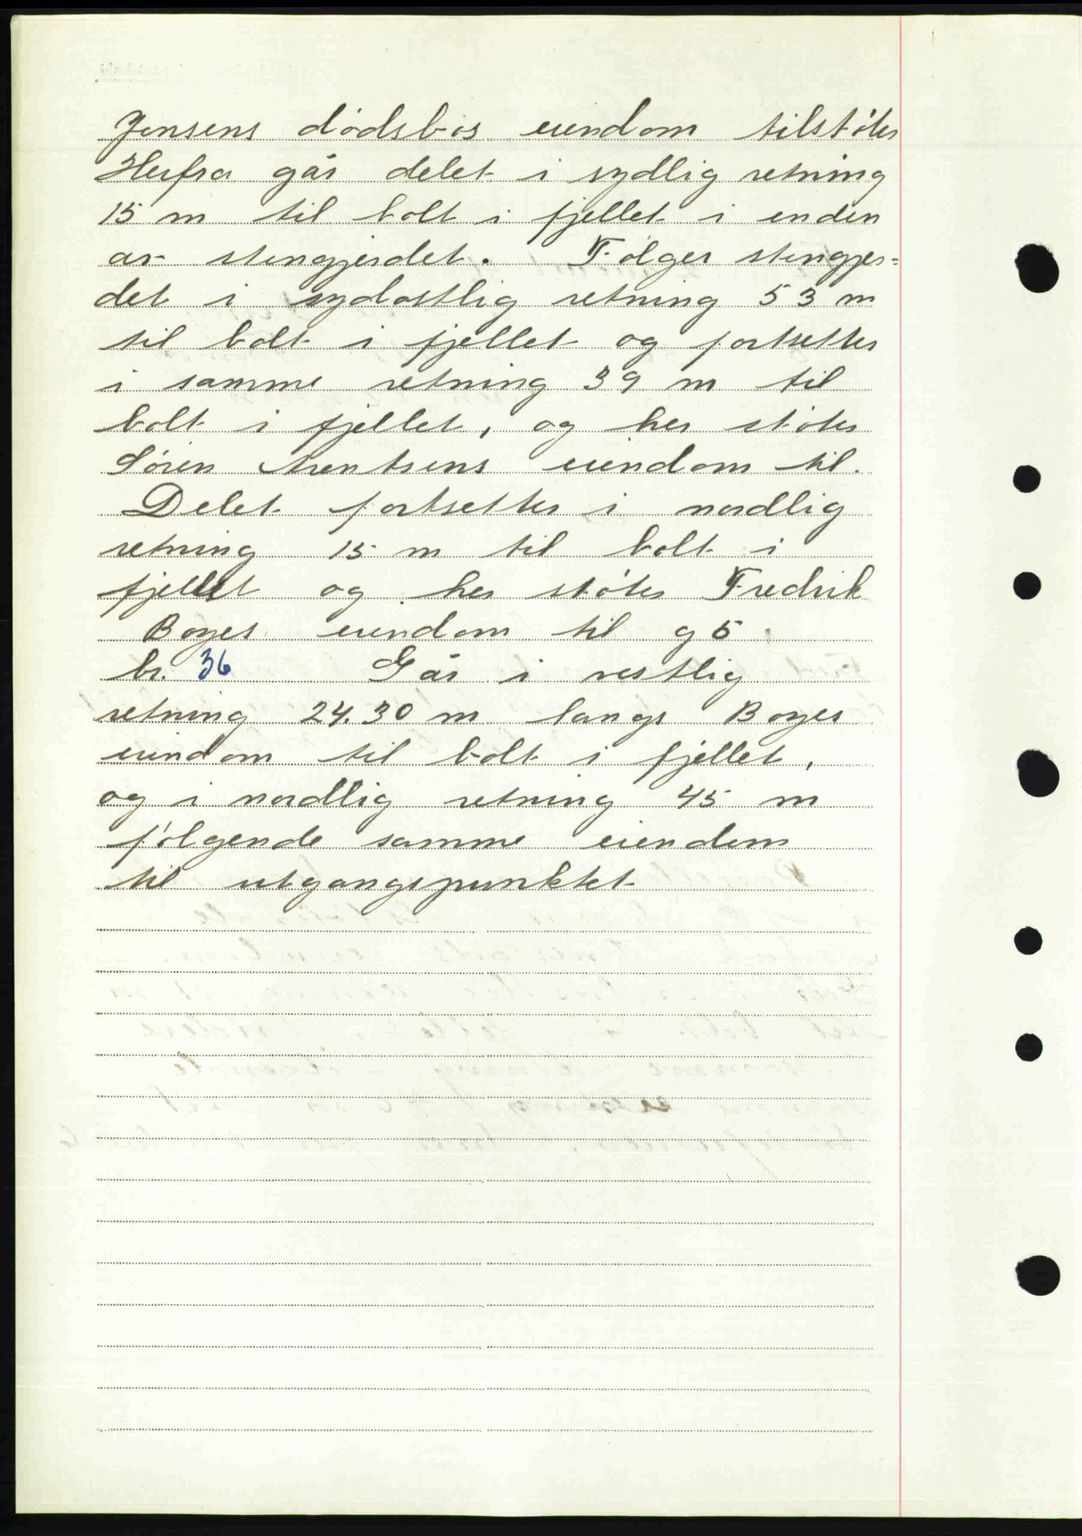 Jensens dødsbos eiendom tilstøter
Herfra går delet i sydlig retning
15 m til bolt i fjellet i enden
av stengjerdet. Følger stengjer=
det i sydøstlig retning 53 m
til bolt i fjellet og fortsetter
i samme retning 39 m til
bolt i fjellet, og her støter
Søren eiendom til.
Delet fortsetter i nordlig
retning 15 m til bolt i
fjellet og her støter Fredrik
Boyes eiendom til g 5
br. 36 Går i vestlig
retning 24.30 m langs Boyes
eiendom til bolt i fjellet,
og i nordlig retning 45 m
følgende samme eiendom
til utgangspunktet